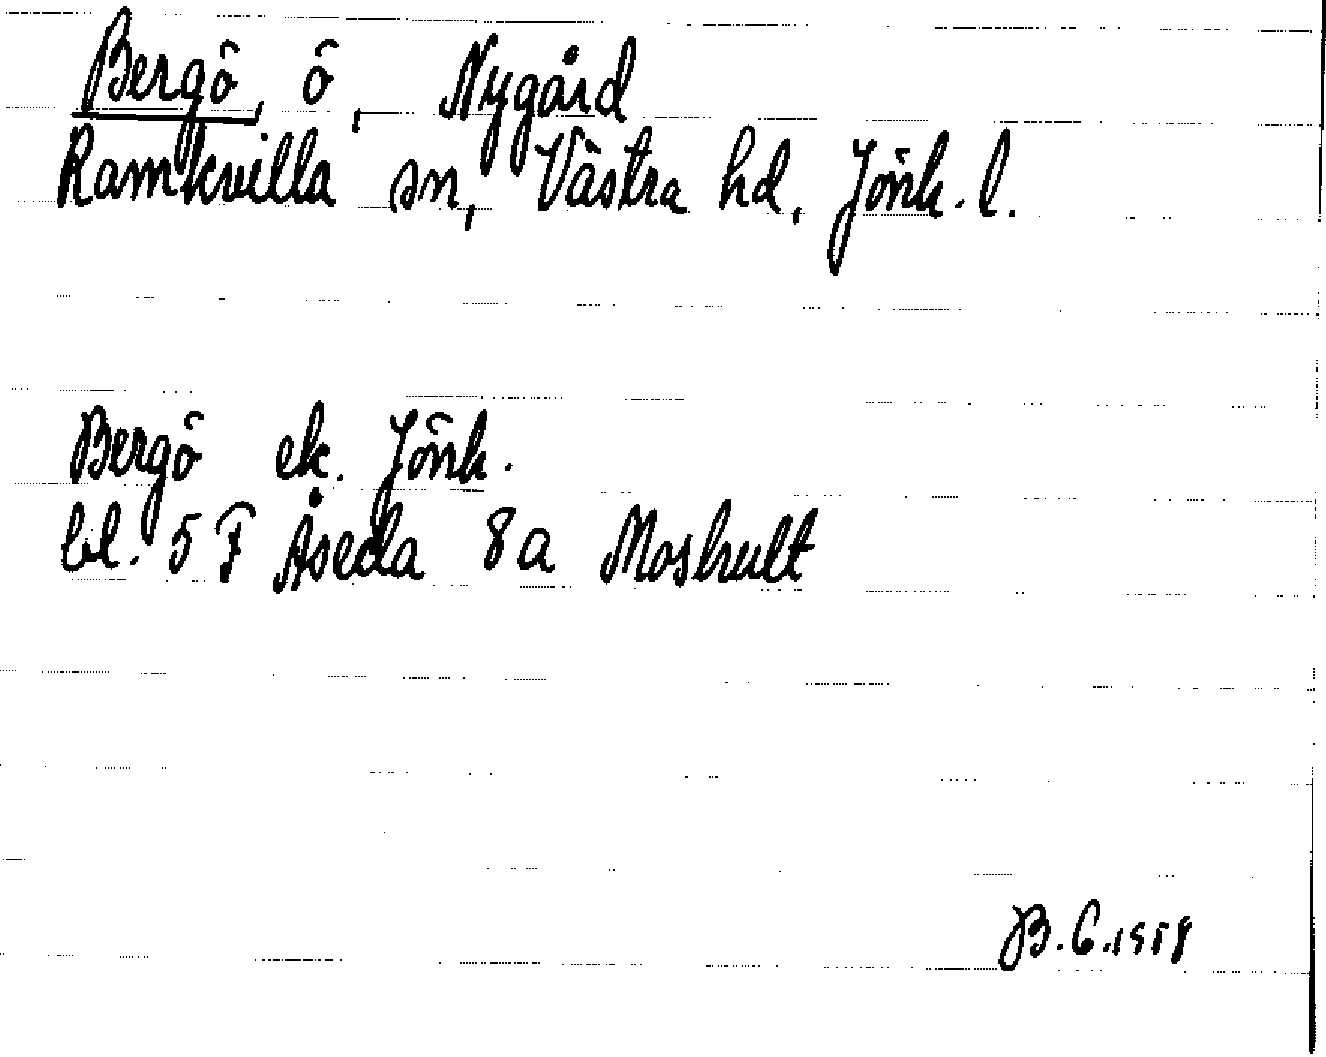 Bergö, ö, Nygård
Ramkvilla sn, Västra hd, Jönk. l.
Bergö ek. Jönk.
bl. 5 F Åseda 8a Moshult
B.G. 1958